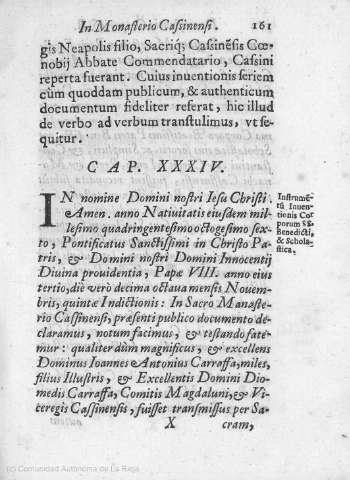 In Monasterio Cassinensi. 161
gis Neapolis filio, Sacriq; Cassinẽsis Cœ-
nobij Abbate Commendatario, Cassini
reperta fuerant. Cuius inuentionis seriem
cùm quoddam publicum, & authenticum
documentum fideliter referat, hic illud
de verbo ad verbum transtulimus, vt se-
quitur.
CAP. XXXIV.
IN nomine Domini nostri Iesu Christi
Amen. anno Natiuitatis eiusdem mil-
lesimo quadringentesimo octogesimo sex-
to, Pontificatus Sanctissimi in Christo Pa-
tris, & Domini nostri Domini Innocentij
Diuina prouidentia, Papæ VIII. anno eius
tertio, die verò decima octaua mensis Nouem-
bris, quintæ Indictionis: In Sacro Manaste-
rio Cassinensi, præsenti publico documento de-
claramus, notum facimus, & testando fate-
mur: qualiter dũm magnificus, & excellens
Dominus Ioannes Antonius Carraffa, miles,
filius Illustris, & Excellentis Domini Dio-
medis Carraffa, Comitis Magdaluni, & Vi-
ceregis Cassinensis, fuisset transmissus per Sa-
X cram,
Instrumẽ-
tũ Inuen-
tionis Cor
porum SS.
Benedicti,
& Schola-
stica.
(c) Comunidad Autónoma de La Rioja